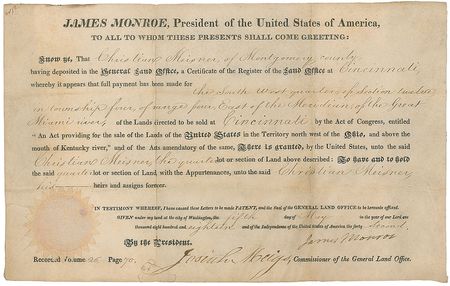 JAMES MONROE, President of the United States of America,
TO ALL TO WHOM THESE PRESENTS SHALL COME, GREETING:
Know ye, That Christian Meisner, of Montgomery county
having deposited in the General Land Office, a Certificate of the Register of the Land Office at Cincinnati,
whereby it appears that full payment has been made for the South West quarter of Section twelve
in township four, of range four, East of the Meridian of the Great
Miami river, of the Lands directed to be sold at Cincinnati by the Act of Congress, entitled
“An Act providing for the sale of the Lands of the United States in the Territory north west of the Ohio, and above the
mouth of Kentucky river,” and of the Acts amendatory of the same, There is granted, by the United States, unto the said
Christian Meisner, the quarter lot or section of Land above described: To have and to hold
the said quarter lot or section of Land, with the Appurtenances, unto the said Christian Meisner,
his heirs and assigns forever.
IN TESTIMONY WHEREOF, I have caused these Letters to be made PATENT, and the Seal of the GENERAL LAND OFFICE to be hereunto affixed.
GIVEN under my hand at the city of Washington, the fifth day of May in the year of our Lord
one thousand eight hundred and eighteen and of the Independence of the United States of America the forty second.
By the President. James Monroe
Recorded Volume 26 Page 70. Josiah Meigs, Commissioner of the General Land Office.